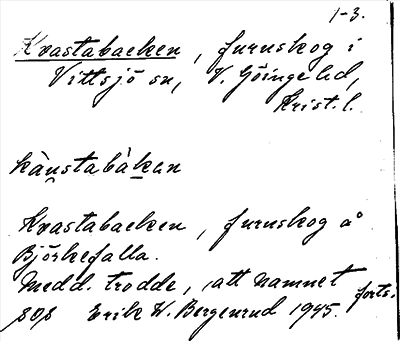 1-3.
Kvastabacken, furuskog i
Vittsjö sn, V. Göinge hd,
Krist. l.
kvàstabàkan
Kvastabacken, furuskog å
Björkefalla.
Medd. trodde, att namnet
forts.
Erik W. Bergenrud 1945.